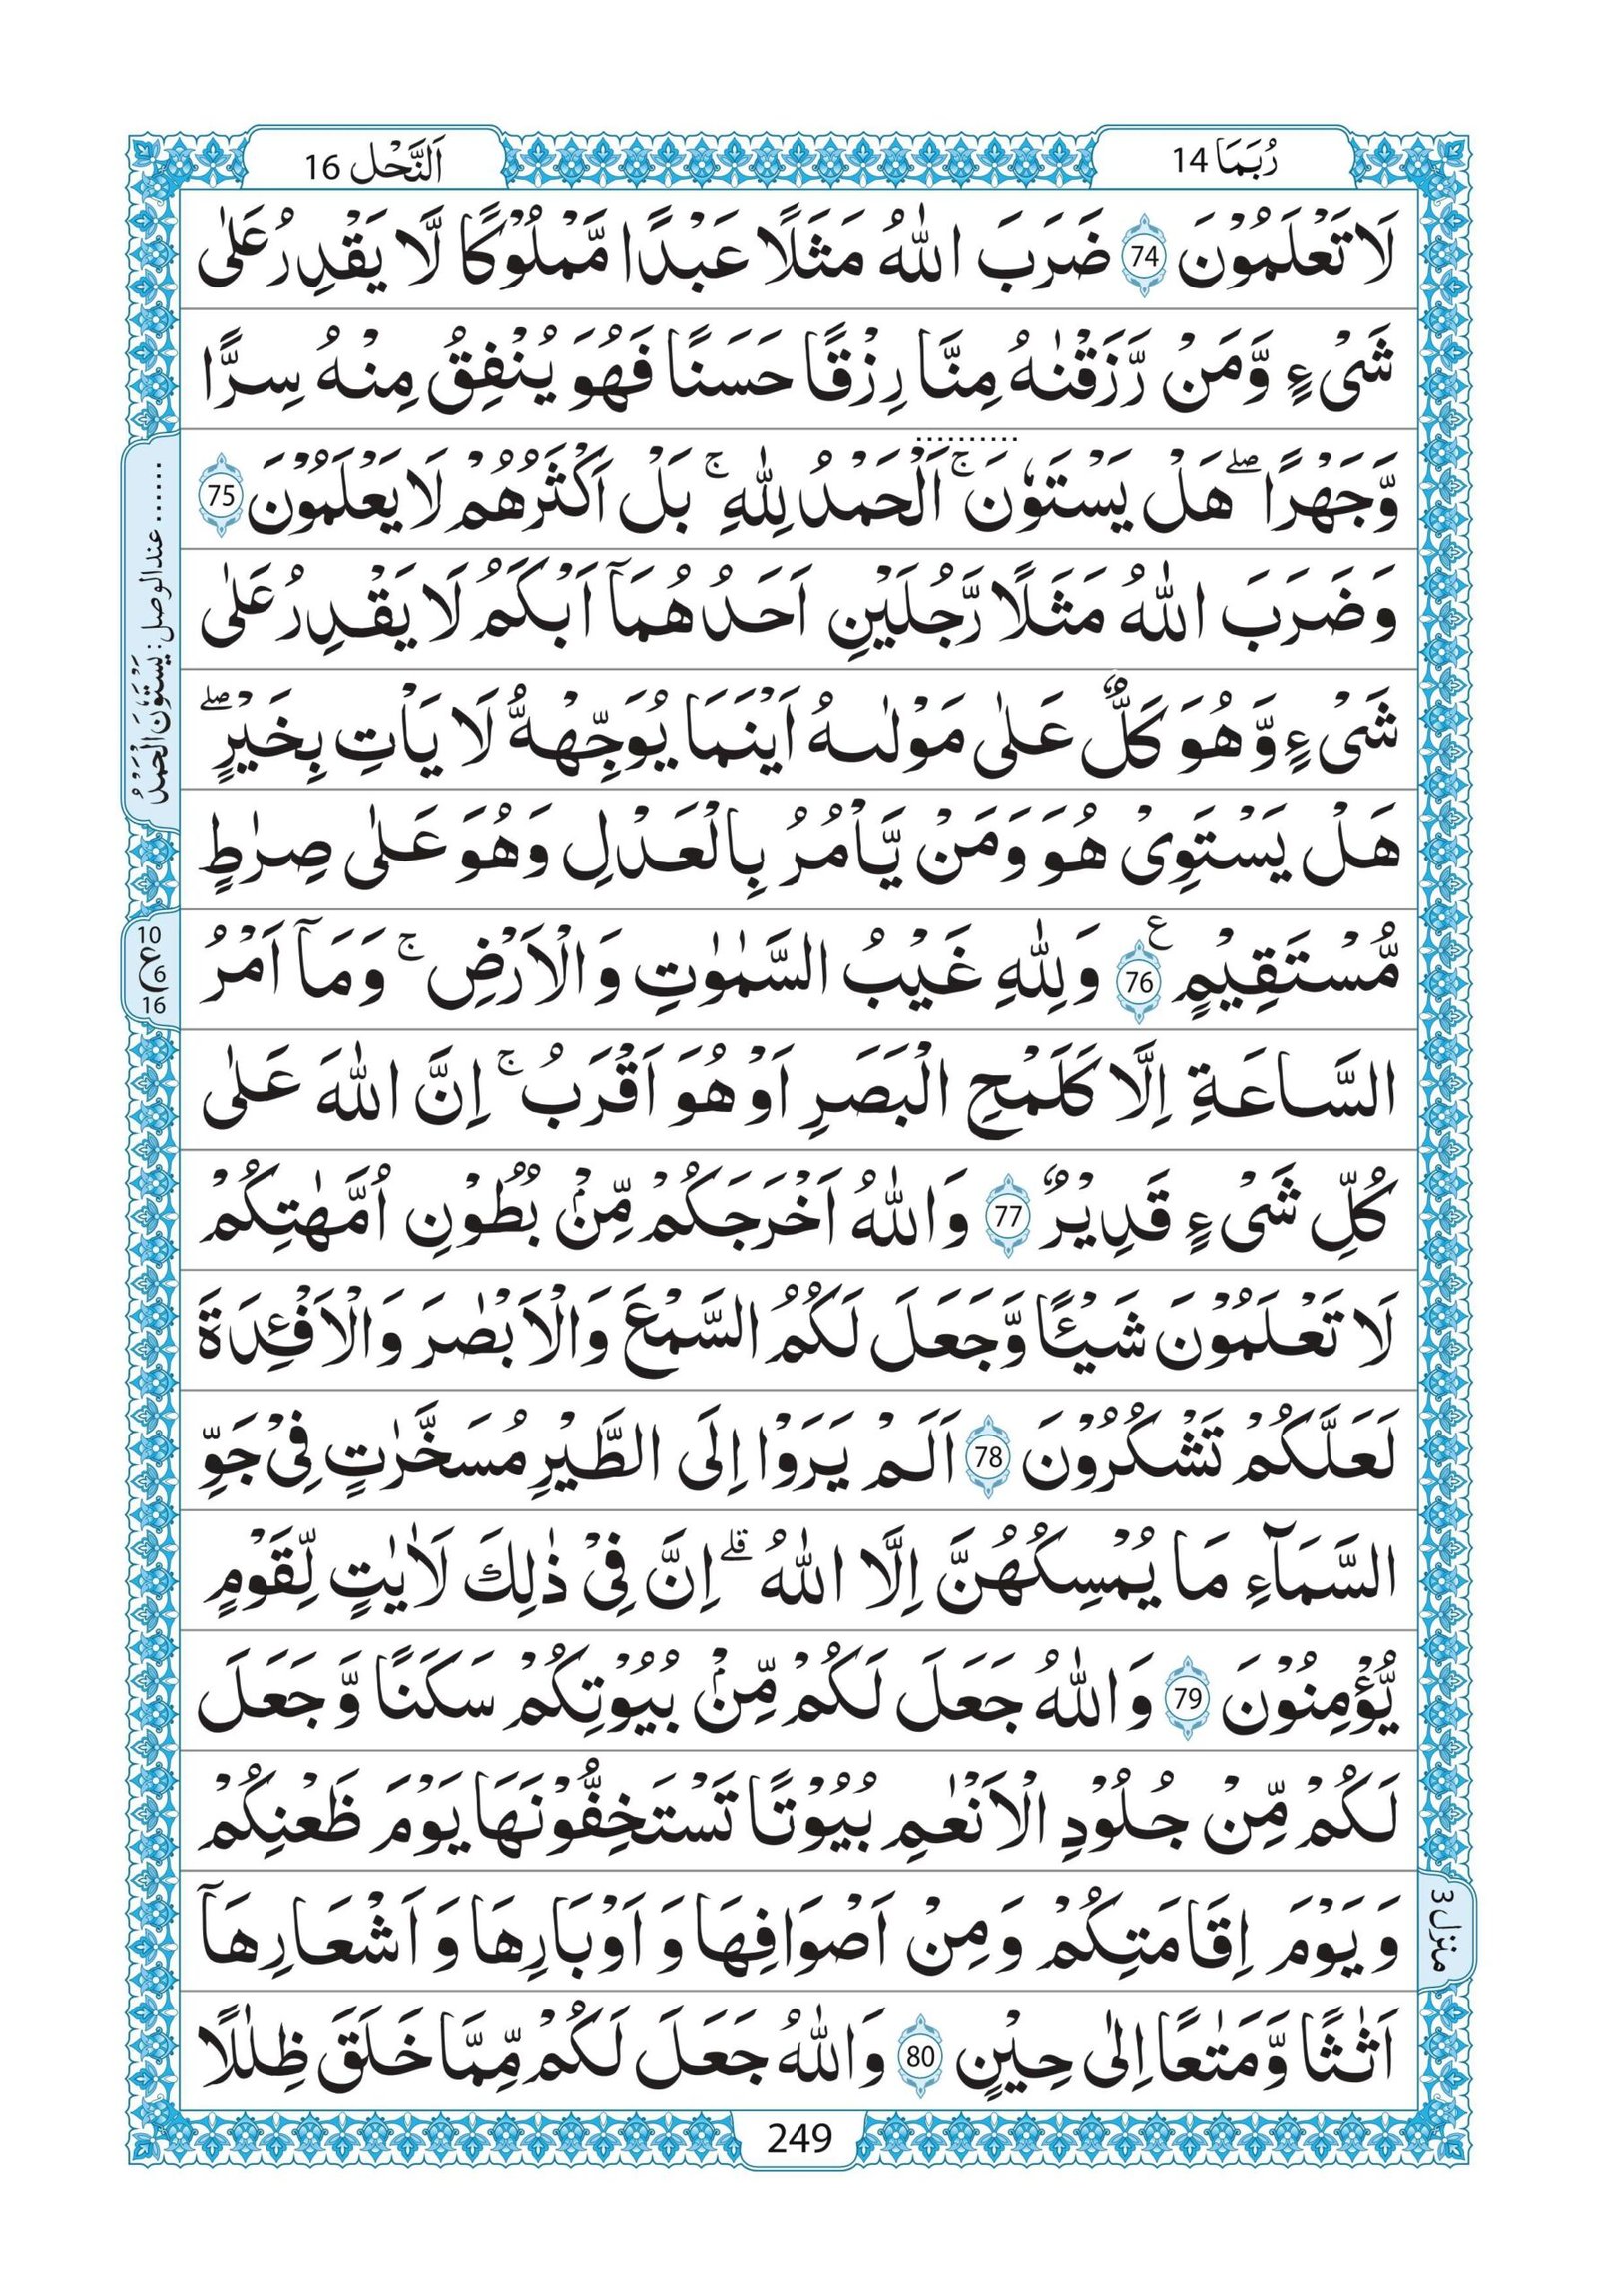 رُبَمَا 14
اَلنَّحْل 16
لَا تَعْلَمُوْنَ 74 ضَرَبَ اللّٰهُ مَثَلًا عَبْدًا مَّمْلُوْكًا لَّا يَقْدِرُ عَلٰى
شَىْءٍ وَّمَنْ رَّزَقْنٰهُ مِنَّا رِزْقًا حَسَنًا فَهُوَ يُنْفِقُ مِنْهُ سِرًّا
وَّجَهْرًا ۖ هَلْ يَسْتَوٗنَ ۚ اَلْحَمْدُ لِلّٰهِ ۚ بَلْ اَكْثَرُهُمْ لَا يَعْلَمُوْنَ 75
وَضَرَبَ اللّٰهُ مَثَلًا رَّجُلَيْنِ اَحَدُهُمَآ اَبْكَمُ لَا يَقْدِرُ عَلٰى
شَىْءٍ وَّهُوَ كَلٌّ عَلٰى مَوْلٰىهُ اَيْنَمَا يُوَجِّهْهُّ لَا يَاْتِ بِخَيْرٍ ۖ
هَلْ يَسْتَوِىْ هُوَ وَمَنْ يَّاْمُرُ بِالْعَدْلِ وَهُوَ عَلٰى صِرٰطٍ
مُّسْتَقِيْمٍ ع 76 وَلِلّٰهِ غَيْبُ السَّمٰوٰتِ وَالْاَرْضِ ۚ وَمَآ اَمْرُ
السَّاعَةِ اِلَّا كَلَمْحِ الْبَصَرِ اَوْ هُوَ اَقْرَبُ ۚ اِنَّ اللّٰهَ عَلٰى
كُلِّ شَىْءٍ قَدِيْرٌ 77 وَاللّٰهُ اَخْرَجَكُمْ مِّنْۢ بُطُوْنِ اُمَّهٰتِكُمْ
لَا تَعْلَمُوْنَ شَيْـًٔا وَّجَعَلَ لَكُمُ السَّمْعَ وَالْاَبْصٰرَ وَالْاَفْـِٕدَةَ
لَعَلَّكُمْ تَشْكُرُوْنَ 78 اَلَمْ يَرَوْا اِلَى الطَّيْرِ مُسَخَّرٰتٍ فِىْ جَوِّ
السَّمَآءِ مَا يُمْسِكُهُنَّ اِلَّا اللّٰهُ ۗ اِنَّ فِىْ ذٰلِكَ لَاٰيٰتٍ لِّقَوْمٍ
يُّؤْمِنُوْنَ 79 وَاللّٰهُ جَعَلَ لَكُمْ مِّنْۢ بُيُوْتِكُمْ سَكَنًا وَّجَعَلَ
لَكُمْ مِّنْ جُلُوْدِ الْاَنْعٰمِ بُيُوْتًا تَسْتَخِفُّوْنَهَا يَوْمَ ظَعْنِكُمْ
وَيَوْمَ اِقَامَتِكُمْ وَمِنْ اَصْوَافِهَا وَاَوْبَارِهَا وَاَشْعَارِهَآ
اَثٰثًا وَّمَتٰعًا اِلٰى حِيْنٍ 80 وَاللّٰهُ جَعَلَ لَكُمْ مِّمَّا خَلَقَ ظِلٰلًا
...... عند الوصل: يَسْتَوٗنَ الْحَمْدُ
10
ع 6
16
منزل 3
249